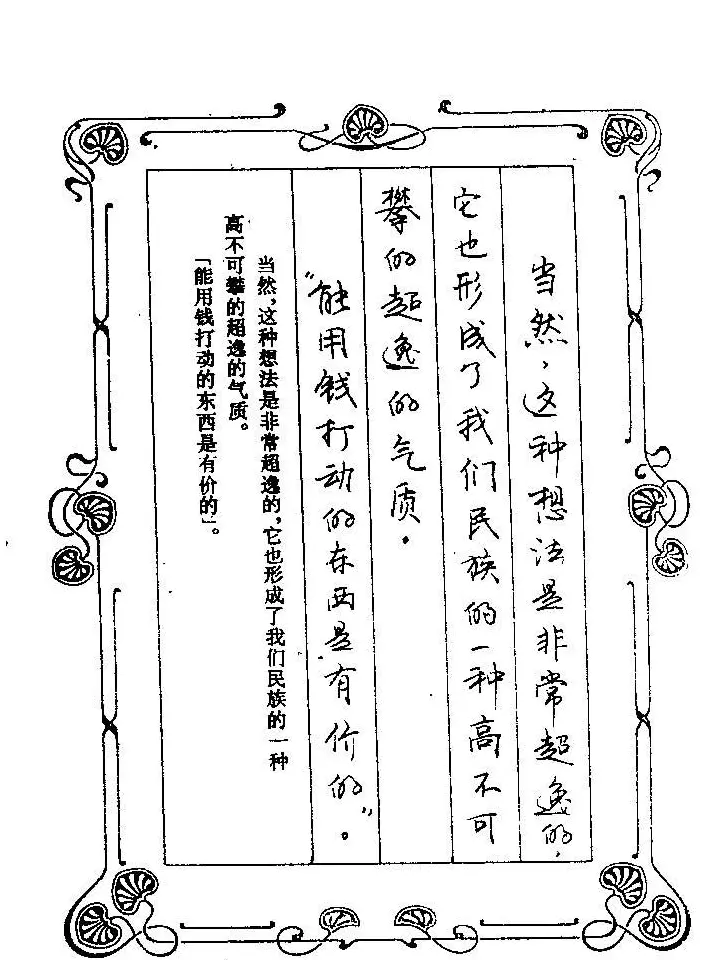 当然，这种想法是非常超逸的，
它也形成了我们民族的一种高不可
攀的超逸的气质。
“能用钱打动的东西是有价的”。
当然，这种想法是非常超逸的，它也形成了我们民族的一种
高不可攀的超逸的气质。
「能用钱打动的东西是有价的」。